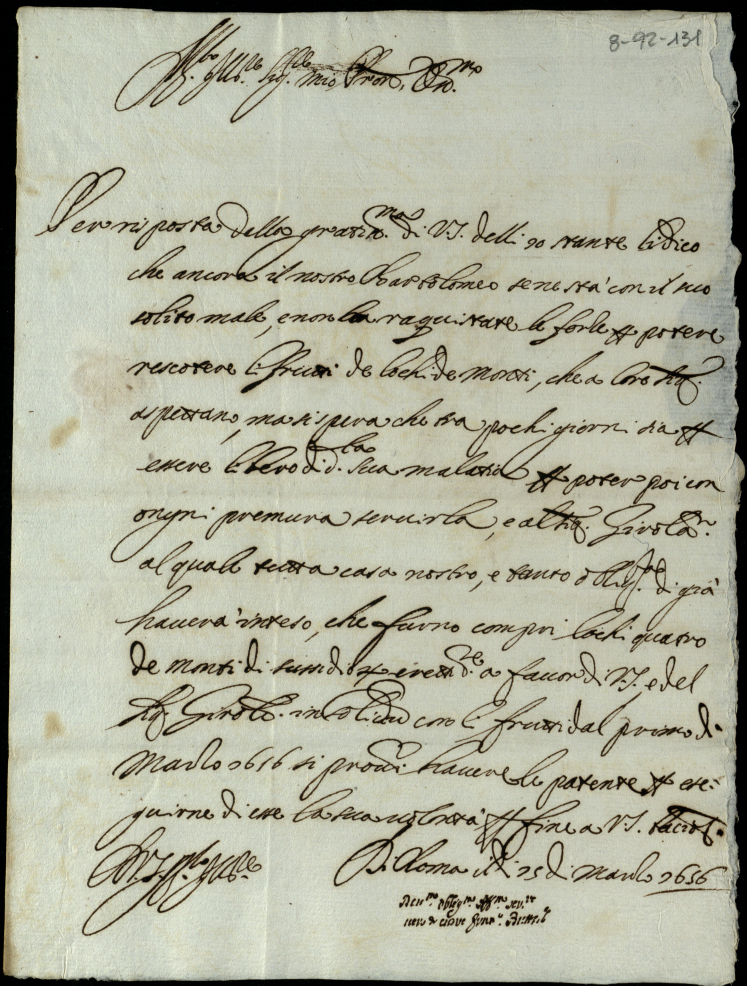 8-92-131
Ill.re Sig.re mio Pron. Oss.mo
Per risposta della gratiss.ma di V.S. delli 10 stante li dico
che ancora il nostro Bartolomeo se ne stà con il suo
solito male, e non ha raquistate le forse p potere
rescotere li frutti de lochi de Monti, che a loro Sig.
aspettano, ma si spera che tra pochi giorni sia p
essere libero di d.ta sua malatia p poter poi con
ongni premura servirla, e al Sig. Girola.o
al quale tutta casa nostro, e tanto oblig.ta di già
haverà inteso, che furno compri lochi quatro
de monti di susidio a favor di V.S. e del
Sig. Girol.o in solidu con li frutti dal primo di
Marzo 1656 si procuri havere le patente p ese-
guirne di esse la sua volontà p fine a V.S. bacio
Di V.S. M.to Ill.re
Di Roma il di 25 di Marzo 1656
Dev.mo oblig.mo Aff.mo ser.re